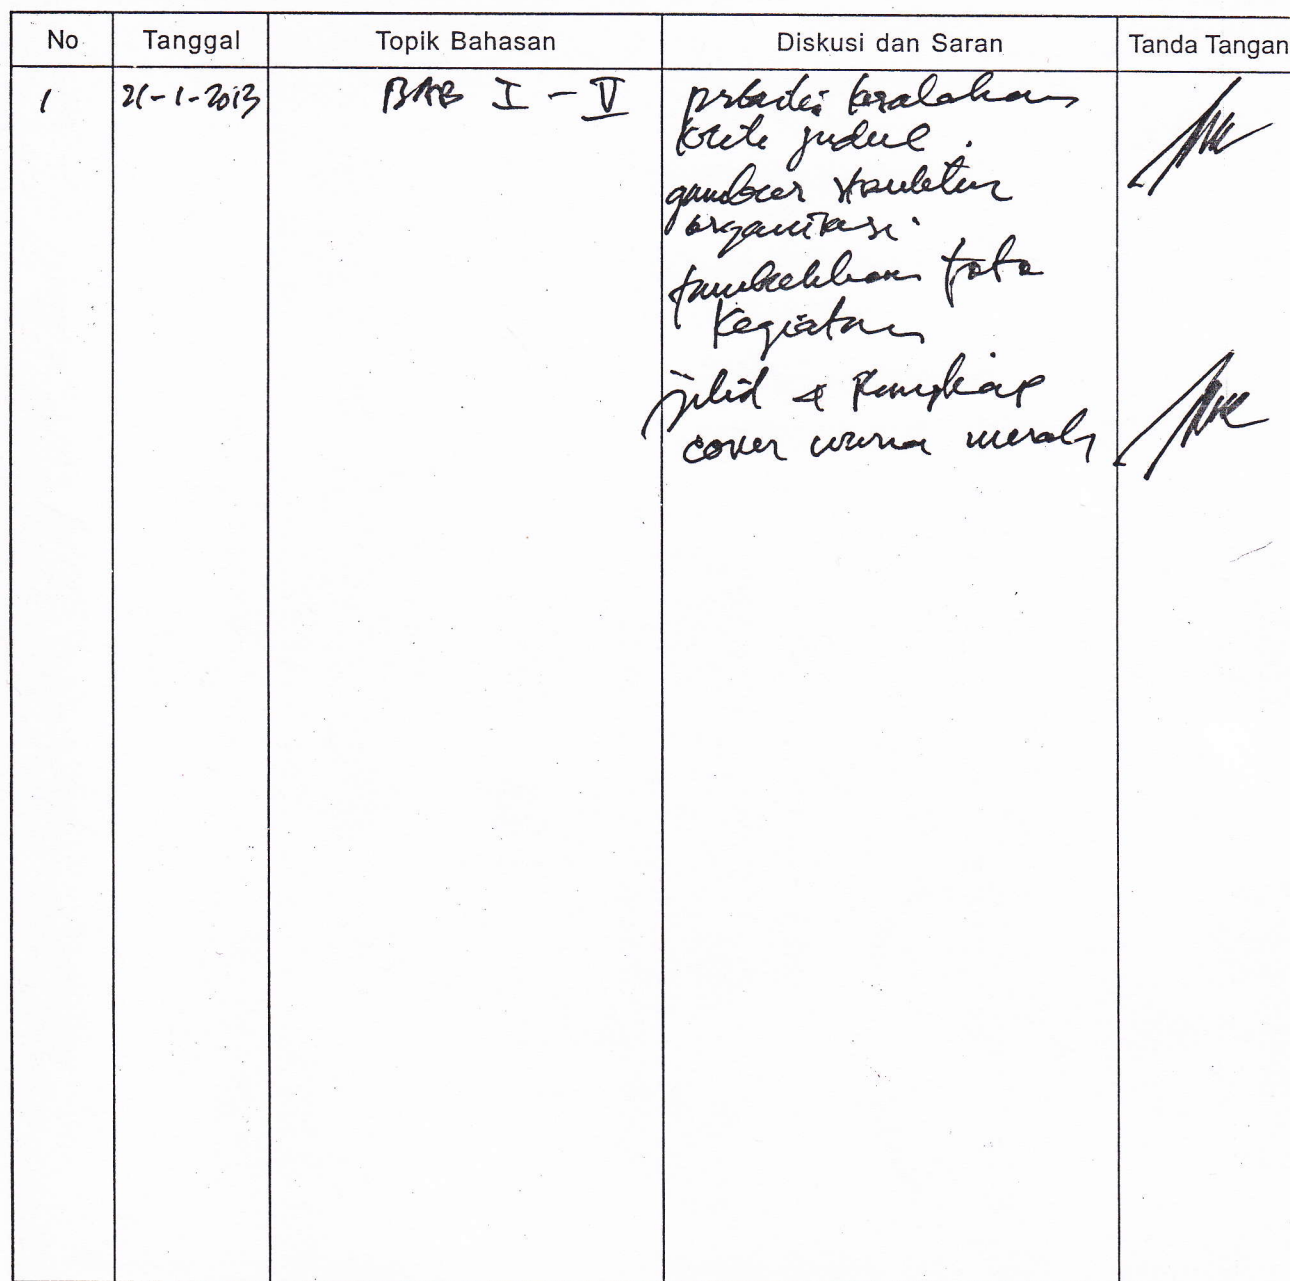 No Tanggal Topik Bahasan Diskusi dan Saran Tanda Tangan
1 21-1-2013 BAB I - V perbaiki kesalahan
judul.
gambar struktur
organisasi.
tambahkan foto
kegiatan
jilid Rangkap
cover warna merah